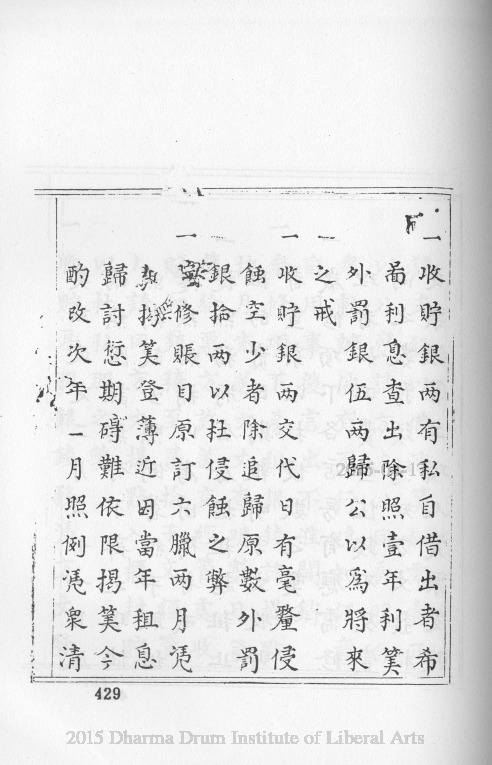 一收貯銀両有私自借出者希
啚利息查出除照壹年利筭
外罰銀伍両歸公以爲將來
一之戒
一收貯銀両交代日有毫釐侵
蝕空少者除追歸原數外罰
銀拾両以杜侵蝕之弊
一修賬目原訂六臘両月凴
筭登薄近因當年租息
歸討愆期碍難依限揭筭今
酌改次年一月照例凴衆清
429
2015 Dharma Drum Institute of Liberal Arts